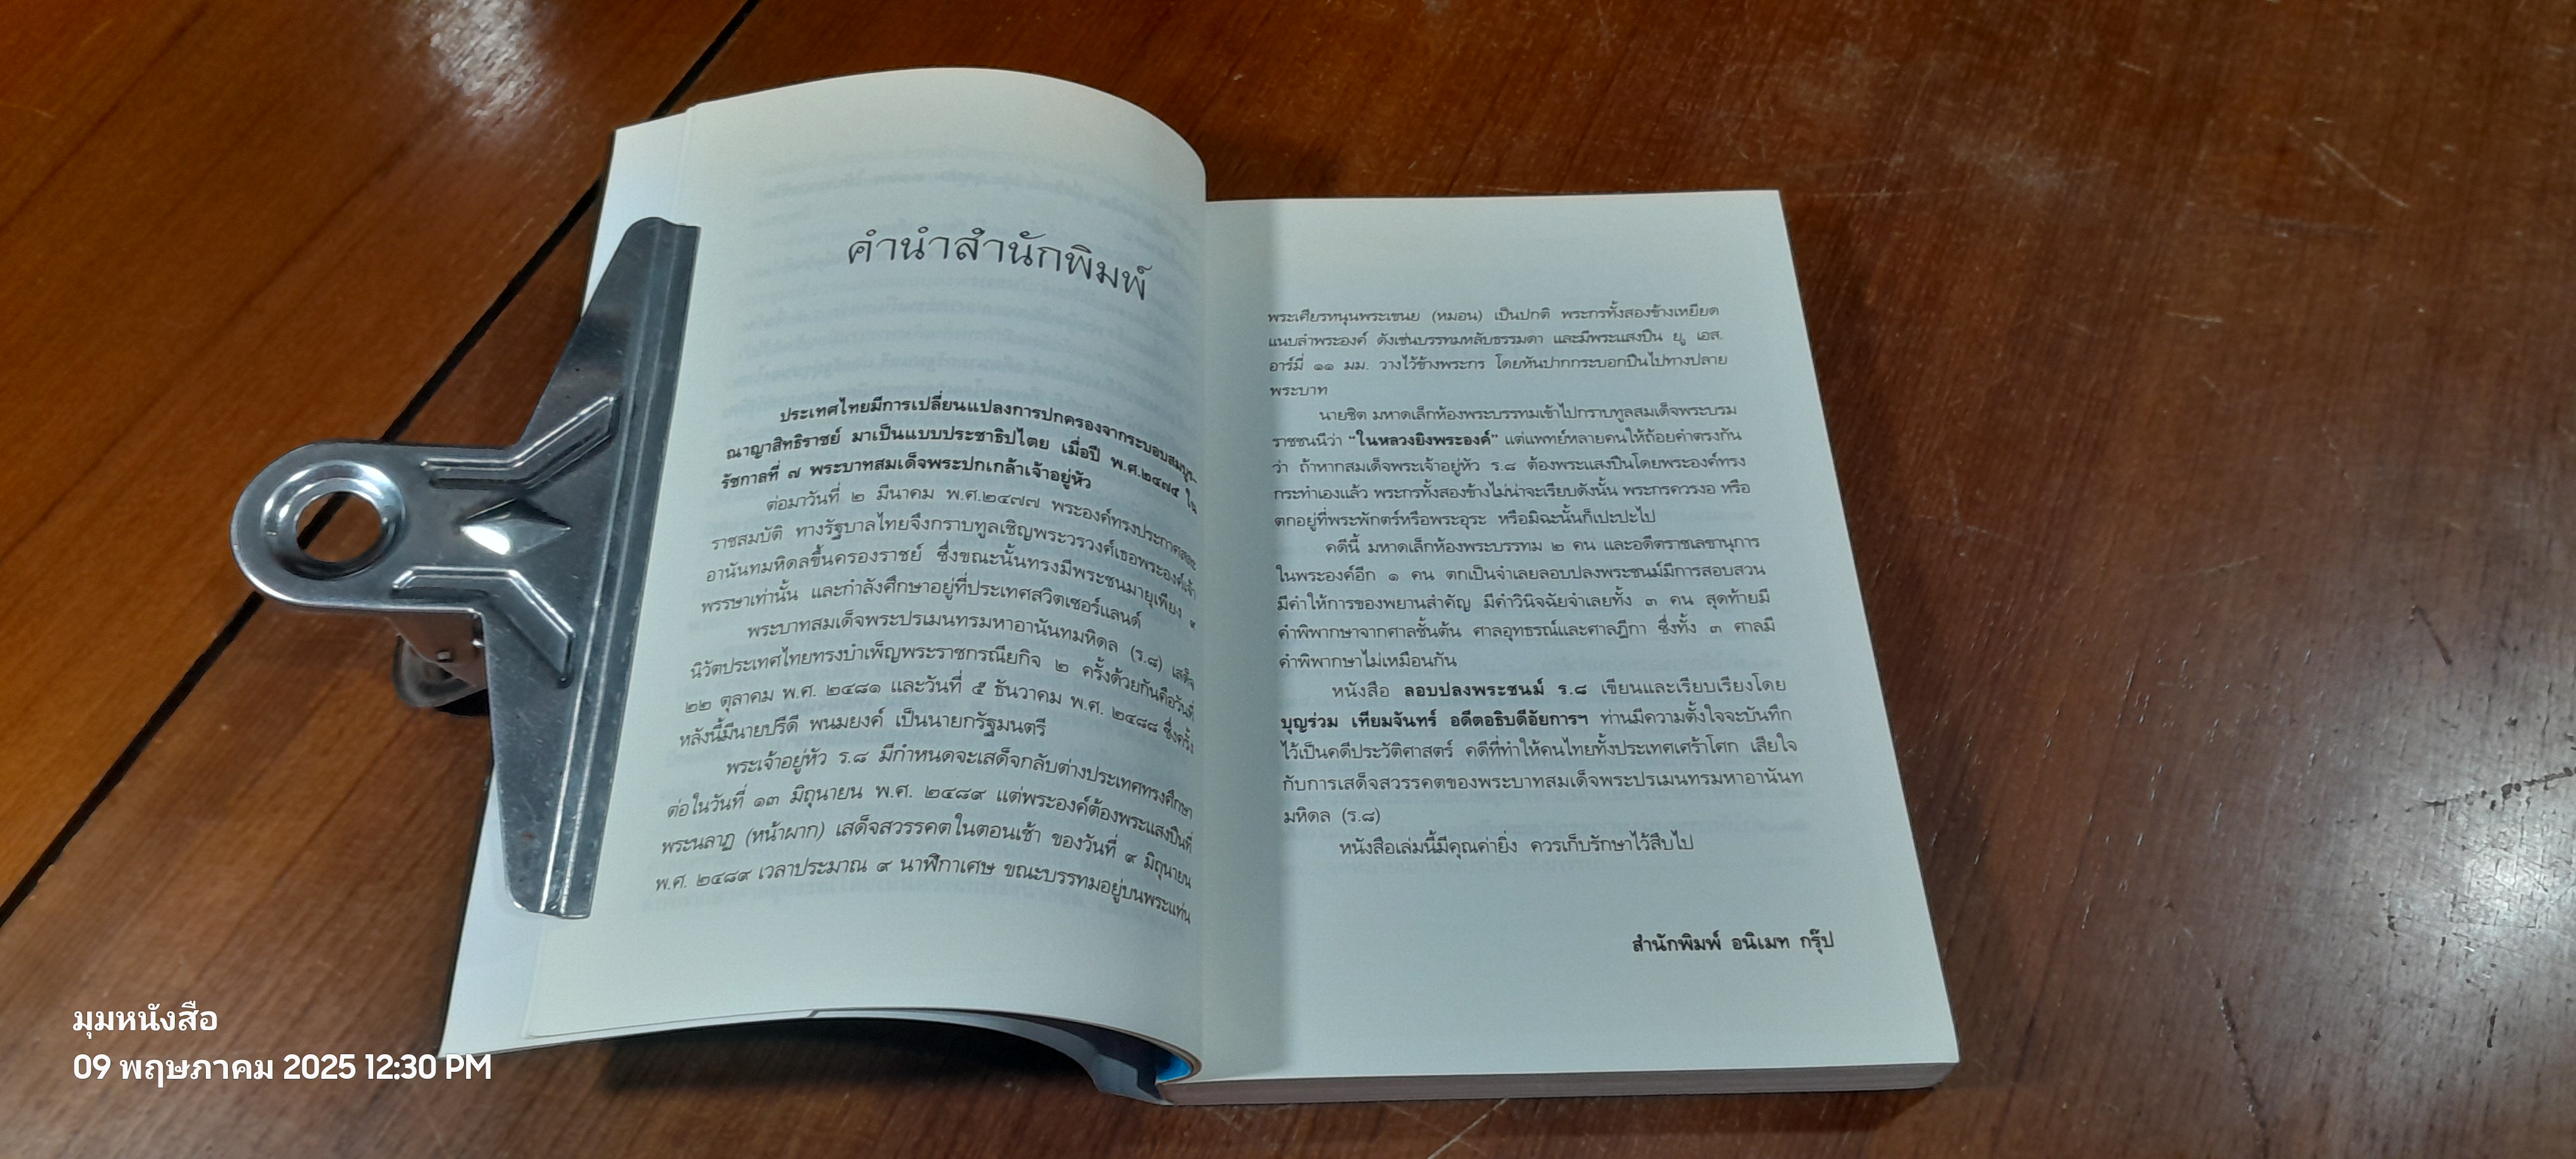 คำนำสำนักพิมพ์
ประเทศไทยมีการเปลี่ยนแปลงการปกครองจากระบอบสมบูร-
ณาญาสิทธิราชย์ มาเป็นแบบประชาธิปไตย เมื่อปี พ.ศ.๒๔๗๕ ใน
รัชกาลที่ ๗ พระบาทสมเด็จพระปกเกล้าเจ้าอยู่หัว
ต่อมาวันที่ ๒ มีนาคม พ.ศ.๒๔๗๗ พระองค์ทรงประกาศสละ
ราชสมบัติ ทางรัฐบาลไทยจึงกราบทูลเชิญพระวรวงศ์เธอพระองค์เจ้า
อานันทมหิดลขึ้นครองราชย์ ซึ่งขณะนั้นทรงมีพระชนมายุเพียง ๙
พรรษาเท่านั้น และกำลังศึกษาอยู่ที่ประเทศสวิตเซอร์แลนด์
พระบาทสมเด็จพระปรเมนทรมหาอานันทมหิดล (ร.๘) เสด็จ
นิวัตประเทศไทยทรงบำเพ็ญพระราชกรณียกิจ ๒ ครั้งด้วยกันคือวันที่
๒๒ ตุลาคม พ.ศ. ๒๔๘๑ และวันที่ ๕ ธันวาคม พ.ศ. ๒๔๘๘ ซึ่งครั้ง
หลังนี้มีนายปรีดี พนมยงค์ เป็นนายกรัฐมนตรี
พระเจ้าอยู่หัว ร.๘ มีกำหนดจะเสด็จกลับต่างประเทศทรงศึกษา
ต่อในวันที่ ๑๓ มิถุนายน พ.ศ. ๒๔๘๙ แต่พระองค์ต้องพระแสงปืนที่
พระนลาฏ (หน้าผาก) เสด็จสวรรคตในตอนเช้า ของวันที่ ๙ มิถุนายน
พ.ศ. ๒๔๘๙ เวลาประมาณ ๙ นาฬิกาเศษ ขณะบรรทมอยู่บนพระแท่น
พระเศียรหนุนพระเขนย (หมอน) เป็นปกติ พระกรทั้งสองข้างเหยียด
แนบลำพระองค์ ดังเช่นบรรทมหลับธรรมดา และมีพระแสงปืน ยู. เอส.
อาร์มี่ ๑๑ มม. วางไว้ข้างพระกร โดยหันปากกระบอกปืนไปทางปลาย
พระบาท
นายชิต มหาดเล็กห้องพระบรรทมเข้าไปกราบทูลสมเด็จพระบรม
ราชชนนีว่า “ในหลวงยิงพระองค์” แต่แพทย์หลายคนให้ถ้อยคำตรงกัน
ว่า ถ้าหากสมเด็จพระเจ้าอยู่หัว ร.๘ ต้องพระแสงปืนโดยพระองค์ทรง
กระทำเองแล้ว พระกรทั้งสองข้างไม่น่าจะเรียบดังนั้น พระกรควรงอ หรือ
ตกอยู่ที่พระพักตร์หรือพระอุระ หรือมิฉะนั้นก็เปะปะไป
คดีนี้ มหาดเล็กห้องพระบรรทม ๒ คน และอดีตราชเลขานุการ
ในพระองค์อีก ๑ คน ตกเป็นจำเลยลอบปลงพระชนม์มีการสอบสวน
มีคำให้การของพยานสำคัญ มีคำวินิจฉัยจำเลยทั้ง ๓ คน สุดท้ายมี
คำพิพากษาจากศาลชั้นต้น ศาลอุทธรณ์และศาลฎีกา ซึ่งทั้ง ๓ ศาลมี
คำพิพากษาไม่เหมือนกัน
หนังสือ ลอบปลงพระชนม์ ร.๘ เขียนและเรียบเรียงโดย
บุญร่วม เทียมจันทร์ อดีตอธิบดีอัยการฯ ท่านมีความตั้งใจจะบันทึก
ไว้เป็นคดีประวัติศาสตร์ คดีที่ทำให้คนไทยทั้งประเทศเศร้าโศก เสียใจ
กับการเสด็จสวรรคตของพระบาทสมเด็จพระปรเมนทรมหาอานันท
มหิดล (ร.๘)
หนังสือเล่มนี้มีคุณค่ายิ่ง ควรเก็บรักษาไว้สืบไป
สำนักพิมพ์ อนิเมท กรุ๊ป
มุมหนังสือ
09 พฤษภาคม 2025 12:30 PM